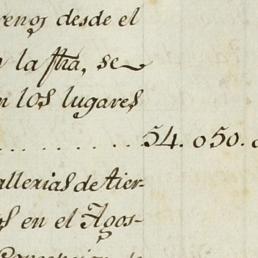 renos desde el
la fha, se
n los lugares
54. o50.
allerias de tier-
os en el Agos-